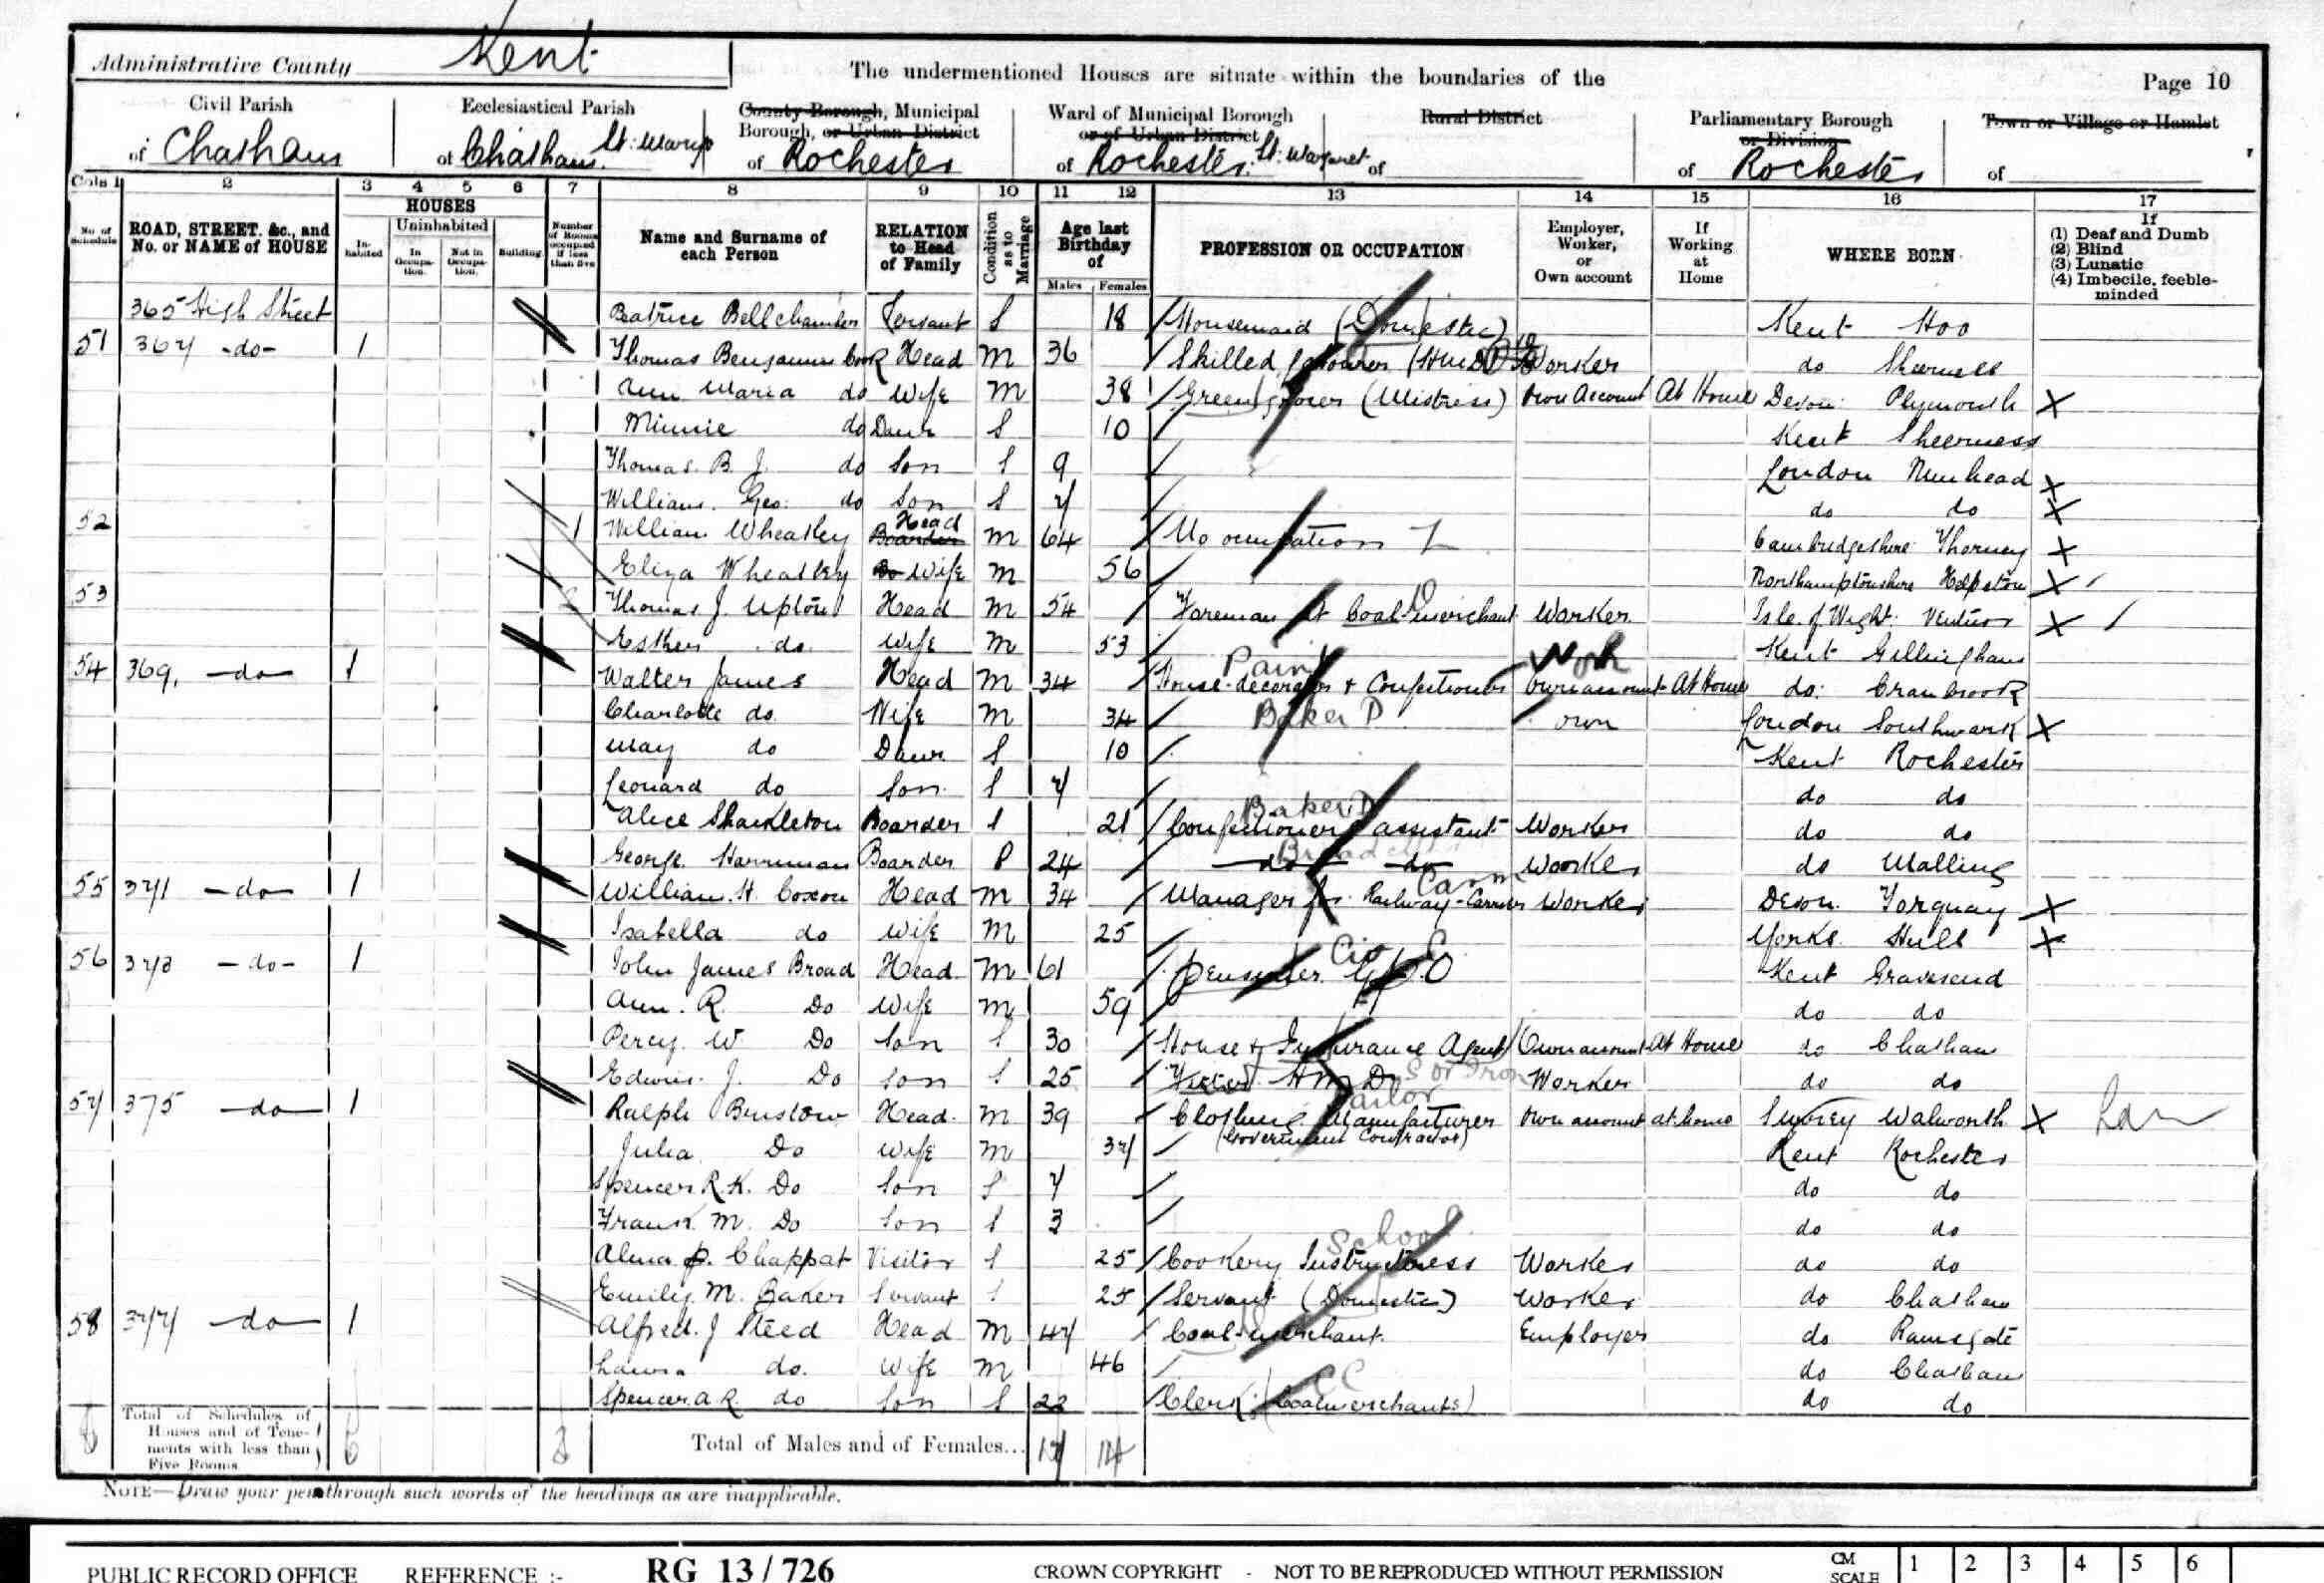 Administrative County Kent
The undermentioned Houses are situate within the boundaries of the
Page 10
Civil Parish of Chatham
Ecclesiastical Parish of Chatham St: Mary's
County Borough, Municipal Borough, or Urban District of Rochester
Ward of Municipal Borough or of Urban District of Rochester St: Margaret
Rural District of
Parliamentary Borough or Division of Rochester
Town or Village or Hamlet of
Cols 1 2 3 4 5 6 7 8 9 10 11 12 13 14 15 16 17
No. of Schedule
ROAD, STREET, &c., and No. or NAME of HOUSE
HOUSES
Inhabited
Uninhabited
In Occupation.
Not in Occupation.
Building
Number of Rooms occupied if less than five
Name and Surname of each Person
RELATION to Head of Family
Condition as to Marriage
Age last Birthday of
Males Females
PROFESSION OR OCCUPATION
Employer, Worker, or Own account
If Working at Home
WHERE BORN
If (1) Deaf and Dumb (2) Blind (3) Lunatic (4) Imbecile, feeble-minded
365 High Street Beatrice Bellchamber Servant S 18 Housemaid (Domestic) Kent Hoo
51 367 -do- 1 Thomas Benjamin Cook Head M 36 Skilled Labourer Worker do Sheerness
Ann Maria do Wife M 38 Green grocer (Mistress) Own Account At Home Devon Plymouth X
Minnie do Daur S 10 Kent Sheerness
Thomas. B. J. do Son S 9 London Nunhead X
William. Geo: do Son S 7 do do X
52 1 William Wheatley Head Boarder M 64 No occupation Cambridgeshire Thorney X
Eliza Wheatley Do Wife M 56 Northamptonshire Helpston X
53 Thomas J. Upton Head M 54 Foreman at Coal-merchant Worker Isle of Wight: Ventnor X
Esther do. Wife M 53 Kent Gillingham
54 369, -do- 1 Walter James Head M 34 House-decorator & Confectioner Paint Own account At Home Work do: Cranbrook
Charlotte do Wife M 34 Baker D own London Southwark X
May do Daur S 10 Kent Rochester
Leonard do Son S 7 do do
Alice Shackleton Boarder S 21 Confectioner's assistant Baker D Worker do do
George Harriman Boarder S 24 -do- -do- Bread Worker do Malling
55 371 -do- 1 William. H. Coxon Head M 34 Manager for Railway-Carriers Worker Devon Torquay X
Isabella do Wife M 25 Yorks Hull X
56 373 -do- 1 John James Broad Head M 61 Pensioner G.P.O Kent Gravesend
Ann. R. Do Wife M 59 do do
Percy. W. Do Son S 30 House & Insurance Agent Own account At Home do Chatham
Edwin. J. Do Son S 25 Fitter H M D Worker do do
57 375 -do- 1 Ralph Bustow Head M 39 Clothing Manufacturer Tailor Own account at home Surrey Walworth X
(Government Contractor)
Julia Do Wife M 37 Kent Rochester
Spencer R. K. Do Son S 7 do do
Frank. M. Do Son S 3 do do
Alma P. Chappat Visitor S 25 Cookery Instructress School Worker do do
Emily. M. Baker Servant S 25 Servant (Domestic) Worker do Chatham
58 377 -do- 1 Alfred. J Steed Head M 47 Coal-merchant. Employer do Ramsgate
Laura do. Wife M 46 do Chatham
Spencer. A R. do Son S 22 Clerk (Coalmerchants) CC do do
Total of Schedules of Houses and of Tenements with less than Five Rooms
Total of Males and of Females... 17 14
NOTE—Draw your pen through such words of the headings as are inapplicable.
PUBLIC RECORD OFFICE REFERENCE :- RG 13 / 726 CROWN COPYRIGHT - NOT TO BE REPRODUCED WITHOUT PERMISSION CM SCALE 1 2 3 4 5 6